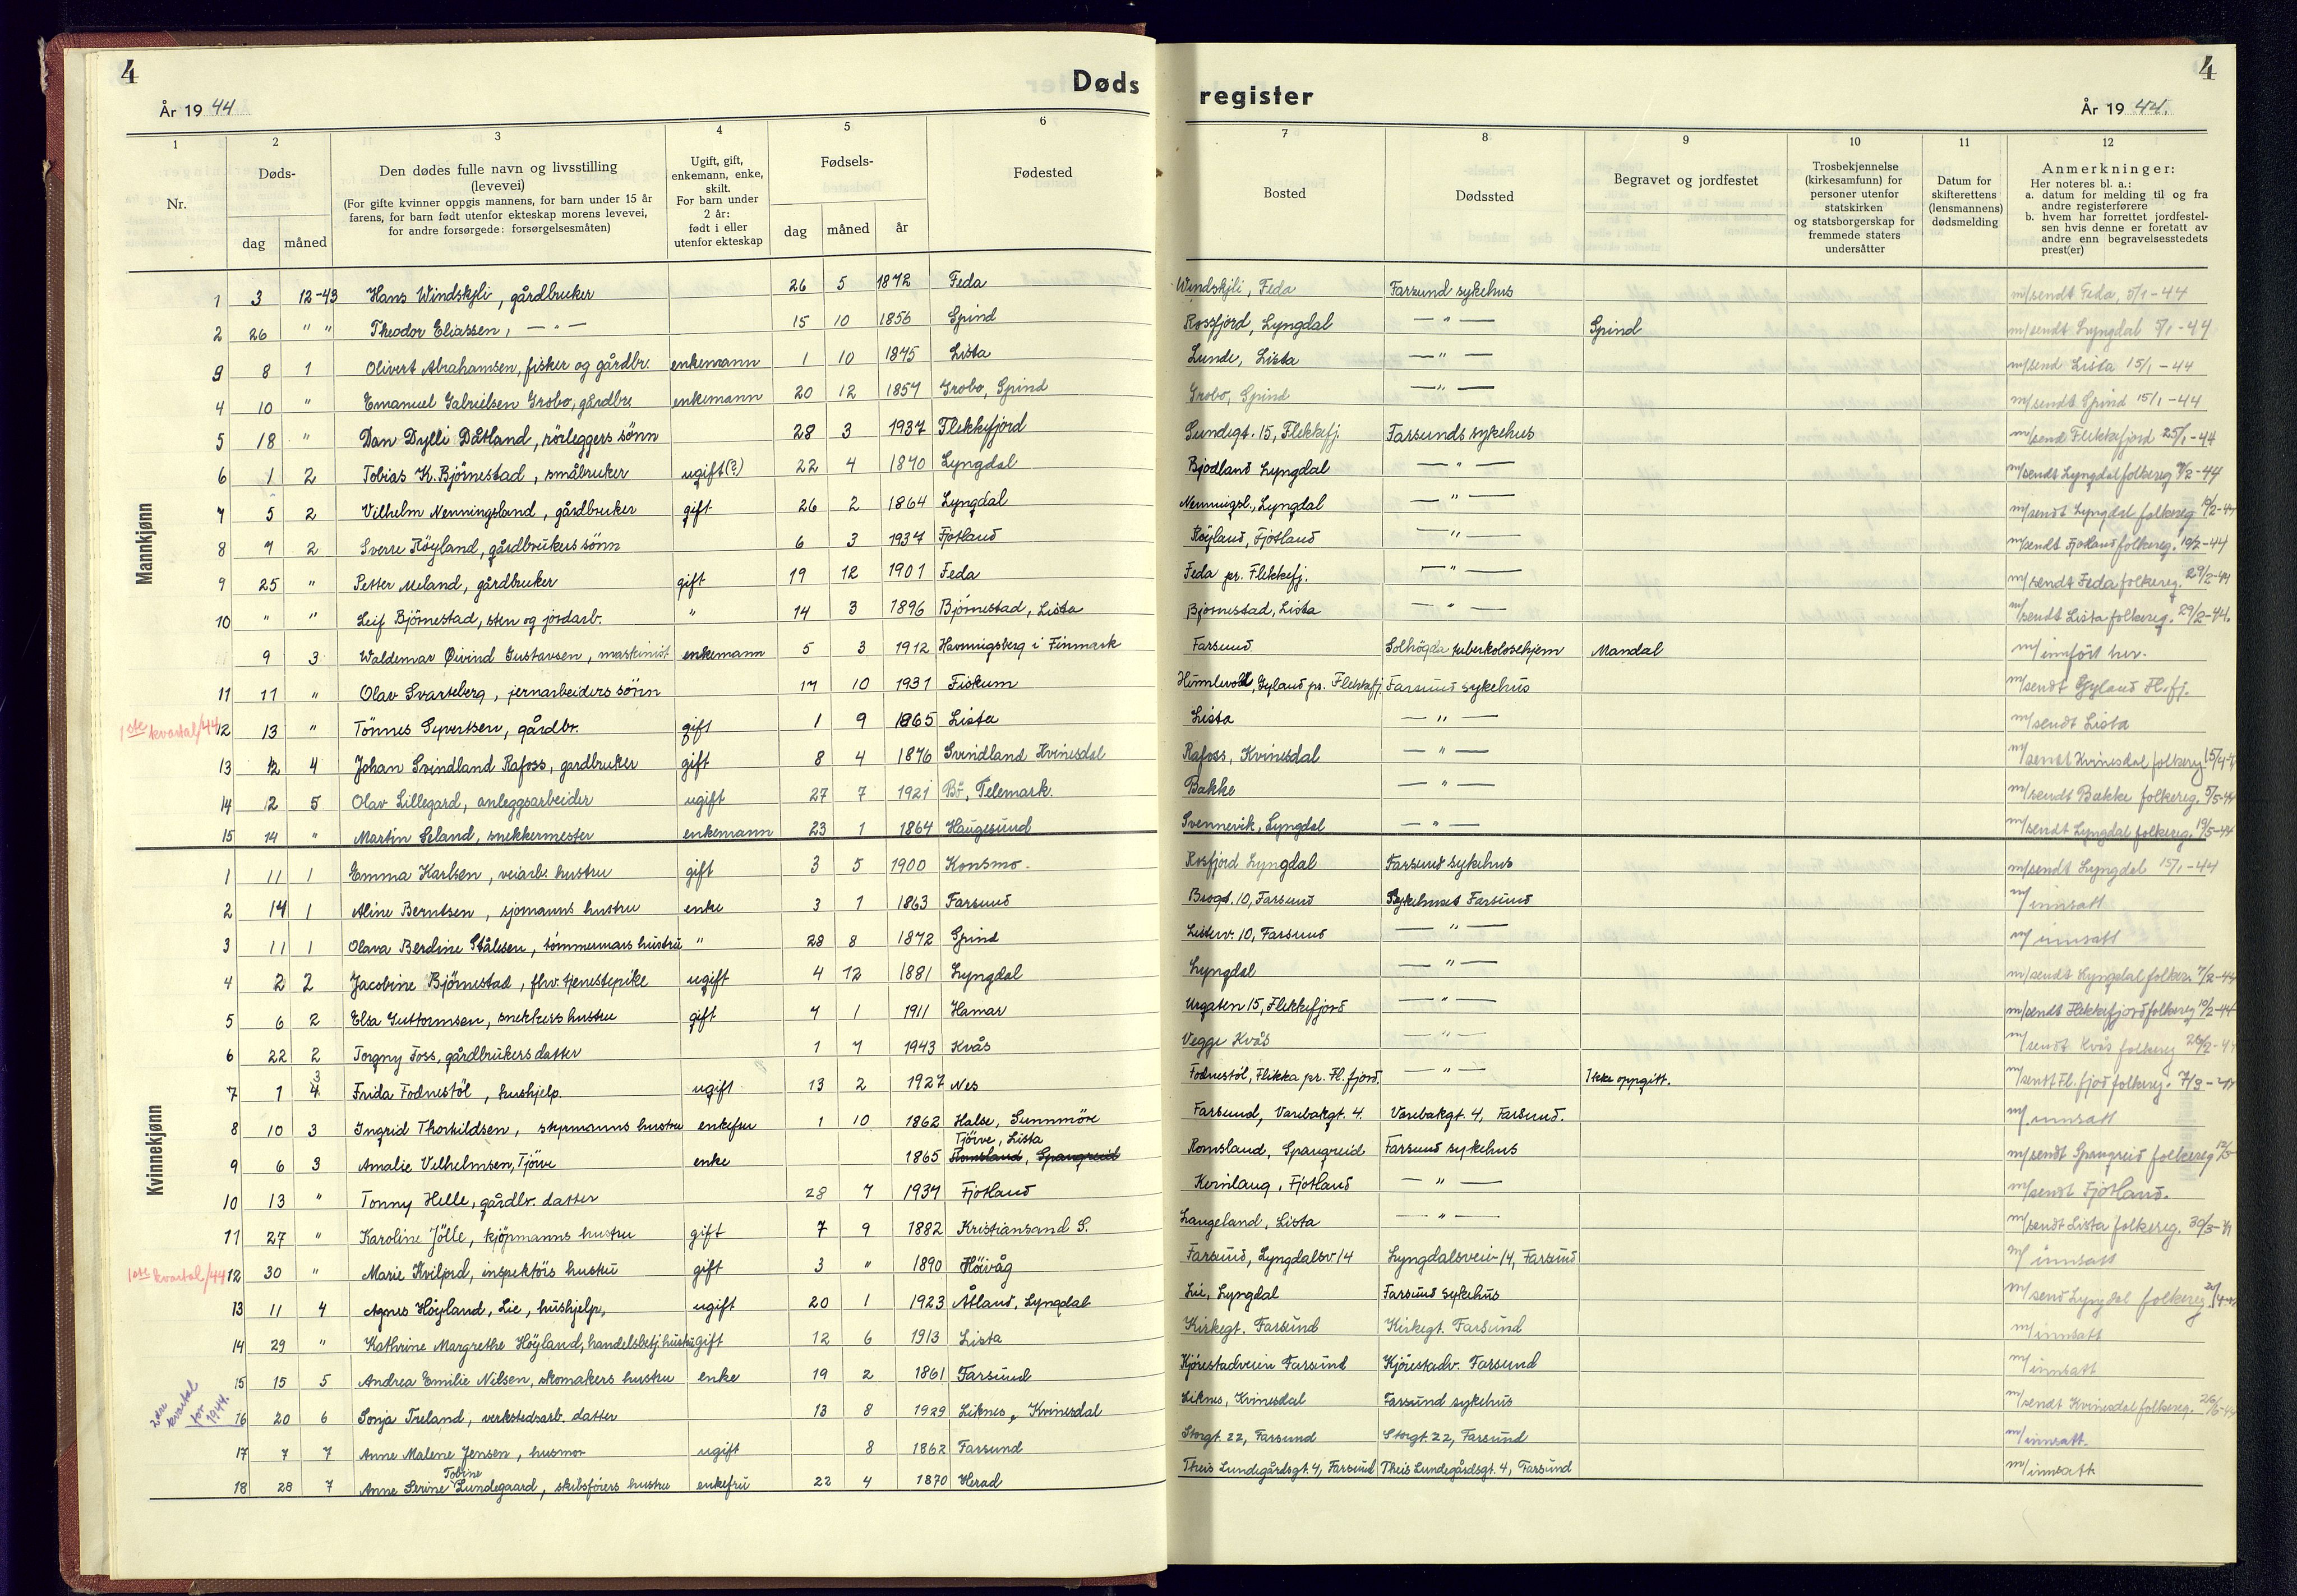 4
Døds
År 1944
1
2
3
4
5
6
Nr.
Døds-
dag
måned
Den dødes fulle navn og livsstilling
(levevei)
(For gifte kvinner oppgis mannens, for barn under 15 år
farens, for barn født utenfor ekteskap morens levevei,
for andre forsørgede: forsørgelsesmåten)
Ugift, gift,
enkemann, enke,
skilt.
For barn under
2 år:
født i eller
utenfor ekteskap
Fødsels-
dag
måned
år
Fødested
register
4
År 1944.
7
8
9
10
11
12
Bosted
Dødssted
Begravet og jordfestet
Trosbekjennelse
(kirkesamfunn) for
personer utenfor
statskirken
og statsborgerskap for
fremmede staters
undersåtter
Datum for
skifterettens
(lensmannens)
dødsmelding
Anmerkninger:
Her noteres bl. a.:
a. datum for melding til og fra
andre registerførere
b. hvem har forrettet jordfestel-
sen hvis denne er foretatt av
andre enn begravelsesstedets
prest(er)
Mannkjønn
1 3 12-43 Hans Windskjli, gårdbruker 26 5 1872 Feda Windskjli, Feda Farsund sykehus m/sendt Feda, 5/1-44
2 26 " " Theodor Eliassen, — " — 15 10 1856 Spind Rosfjord, Lyngdal — " — Spind m/sendt Lyngdal 5/1-44
3 8 1 Olivert Abrahamsen, fisker og gårdbr. enkemann 1 10 1875 Lista Lunde, Lista — " — m/send Lista 15/1-44
4 10 " Emanuel Gabrielsen Grobo, gårdbr. enkemann 20 12 1857 Grobo, Spind Grobo, Spind — " — m/sendt Spind 15/1-44
5 18 " Dan Dylli Dåtland, rörleggers sönn 28 3 1937 Flekkefjord Sundegt. 15, Flekkefj. Farsunds sykehus m/send Flekkefjord 25/1-44
6 1 2 Tobias K. Björnestad, småbruker ugift(?) 22 4 1870 Lyngdal Bjodland Lyngdal — " — m/sendt Lyngdal folkereg /2-44
7 5 2 Vilhelm Nenningsland, gårdbruker gift 26 2 1864 Lyngdal Nenningsl., Lyngdal — " — m/sendt Lyngdal folkereg 10/2-44
8 7 2 Sverre Röyland, gårdbrukers sönn 6 3 1937 Fjotland Röyland, Fjotland — " — m/sendt Fjotland folkereg. 10/2-44
9 25 " Petter Meland, gårdbruker gift 19 12 1901 Feda Feda pr. Flekkefj. — " — m/sendt Feda folkereg. 29/2-44
10 " " Leif Björnestad, sten og jordarb. " 14 3 1896 Björnestad, Lista Björnestad, Lista — " — m/sendt Lista folkereg. 29/2-44.
9 3 Waldemar Øivind Gustavsen, maskinist enkemann 5 3 1912 Havningsberg i Finmark Farsund Solhögda tuberkolosehjem Mandal m/innfört her.
11 11 " Olav Svarteberg, jernarbeiders sönn 17 10 1931 Fiskum Himlevoll, Gyland pr. Flekkefj. Farsund sykehus m/sendt Gyland Fl.fj.
1ste kvartal/44
12 13 " Tönnes Syvertsen, gårdbr. gift 1 9 1865 Lista Lista — " — m/sendt Lista
13 12 4 Johan Svindland Rafoss, gardbruker gift 8 4 1876 Svindland Kvinesdal Rafoss, Kvinesdal — " — m/sendt Kvinesdal folkereg 15/4-44
14 12 5 Olav Lillegard, anleggsarbeider ugift 27 7 1921 Bö, Telemark. Bakke — " — m/sendt Bakke folkereg. 5/5-44
15 14 " Martin Leland, snekkermester enkemann 23 1 1864 Haugesund Svennevik, Lyngdal — " — m/sendt Lyngdal folkereg. 19/5-44
Kvinnekjønn
1 11 1 Emma Karlsen, veiarb. hustru gift 3 5 1900 Konsmo. Rosfjord Lyngdal Farsund sykehus m/sendt Lyngdal 15/1-44
2 14 1 Aline Berntsen, sjömanns hustru enke 3 1 1863 Farsund Brogt. 10, Farsund Sykehuset Farsund m/innsatt
3 11 1 Olava Berdine Stålesen, tömmermans hustru " 28 8 1872 Spind Listerv. 10, Farsund — " — m/innsatt
4 2 2 Jacobine Björnestad, fhv. tjenestepike ugift 4 12 1881 Lyngdal Lyngdal — " — m/sendt Lyngdal folker. 7/2-44
5 6 2 Elsa Guttormsen, snekkers hustru gift 7 1 1911 Hamar Urgaten 15, Flekkefjord — " — m/sendt Flekkefjord folkereg 10/2-44
6 22 2 Torgny Foss, gårdbrukers datter 1 7 1943 Kvås Vegge Kvås — " — m/sendt Kvås folkereg 26/2-44
7 1 4 3 Frida Fodnestöl, hushjelp. ugift 13 2 1927 Nes Fodnestöl, Flikka pr. Fl.fjord. — " — Ikke oppgitt. m/sendt Fl.fjod folkereg. 7/3-44
8 10 3 Ingrid Thorkildsen, styrmanns hustru enkefru 1 10 1862 Halse, Sunnmöre Farsund, Varebakgt. 4. Varebakgt. 4, Farsund. m/innsatt
9 6 3 Amalie Vilhelmsen, Tjörve enke 1865 Tjörve, Lista Romsland, Spangreid Romsland, Spangreid Farsund sykehus m/sendt Spangreid folkereg
10 13 " Tonny Helle, gårdbr. datter 28 7 1937 Fjotland Kvinlaug, Fjotland — " — m/sendt Fjotland.
11 27 " Karoline Jölle, kjöpmanns hustru gift 7 9 1882 Kristiansand S. Langeland, Lista — " — m/sendt Lista folkereg. 30/3-44
1ste kvartal/44
12 30 " Marie Kviljod, inspektörs hustru gift 3 " 1890 Höivåg Farsund, Lyngdalsv. 14 Lyngdalsvei 14, Farsund m/innsatt
13 11 4 Agnes Höyland, Lie, hushjelp, ugift 20 1 1923 Åtland, Lyngdal Lie, Lyngdal Farsund sykehus m/send Lyngdal folkereg
14 29 " Kathrine Margrethe Höyland, handelsbetj. hustru gift 12 6 1913 Lista Kirkegt. Farsund Kirkegt. Farsund m/innsatt
15 15 5 Andrea Emilie Nilsen, skomakers hustru enke 19 2 1861 Farsund Kjörestadveien Farsund Kjörestadv. Farsund m/innsatt
2dre kvartal for 1944.
16 20 6 Sonja Treland, verkstedsarb. datter 13 8 1929 Liknes, Kvinesdal Liknes, Kvinesdal Farsund sykehus m/sendt Kvinesdal folkereg. 26/6-44
17 7 7 Anne Malene Jensen, husmor ugift 8 1862 Farsund Storgt. 22, Farsund Storgt. 22, Farsund m/innsatt.
18 28 7 Anne Serine Tobine Lundegaard, skibsförers hustru enkefru 22 4 1870 Herad Theis Lundegårdsgt. 4, Farsund Theis Lundegårdsgt. 4, Farsund m/innsatt